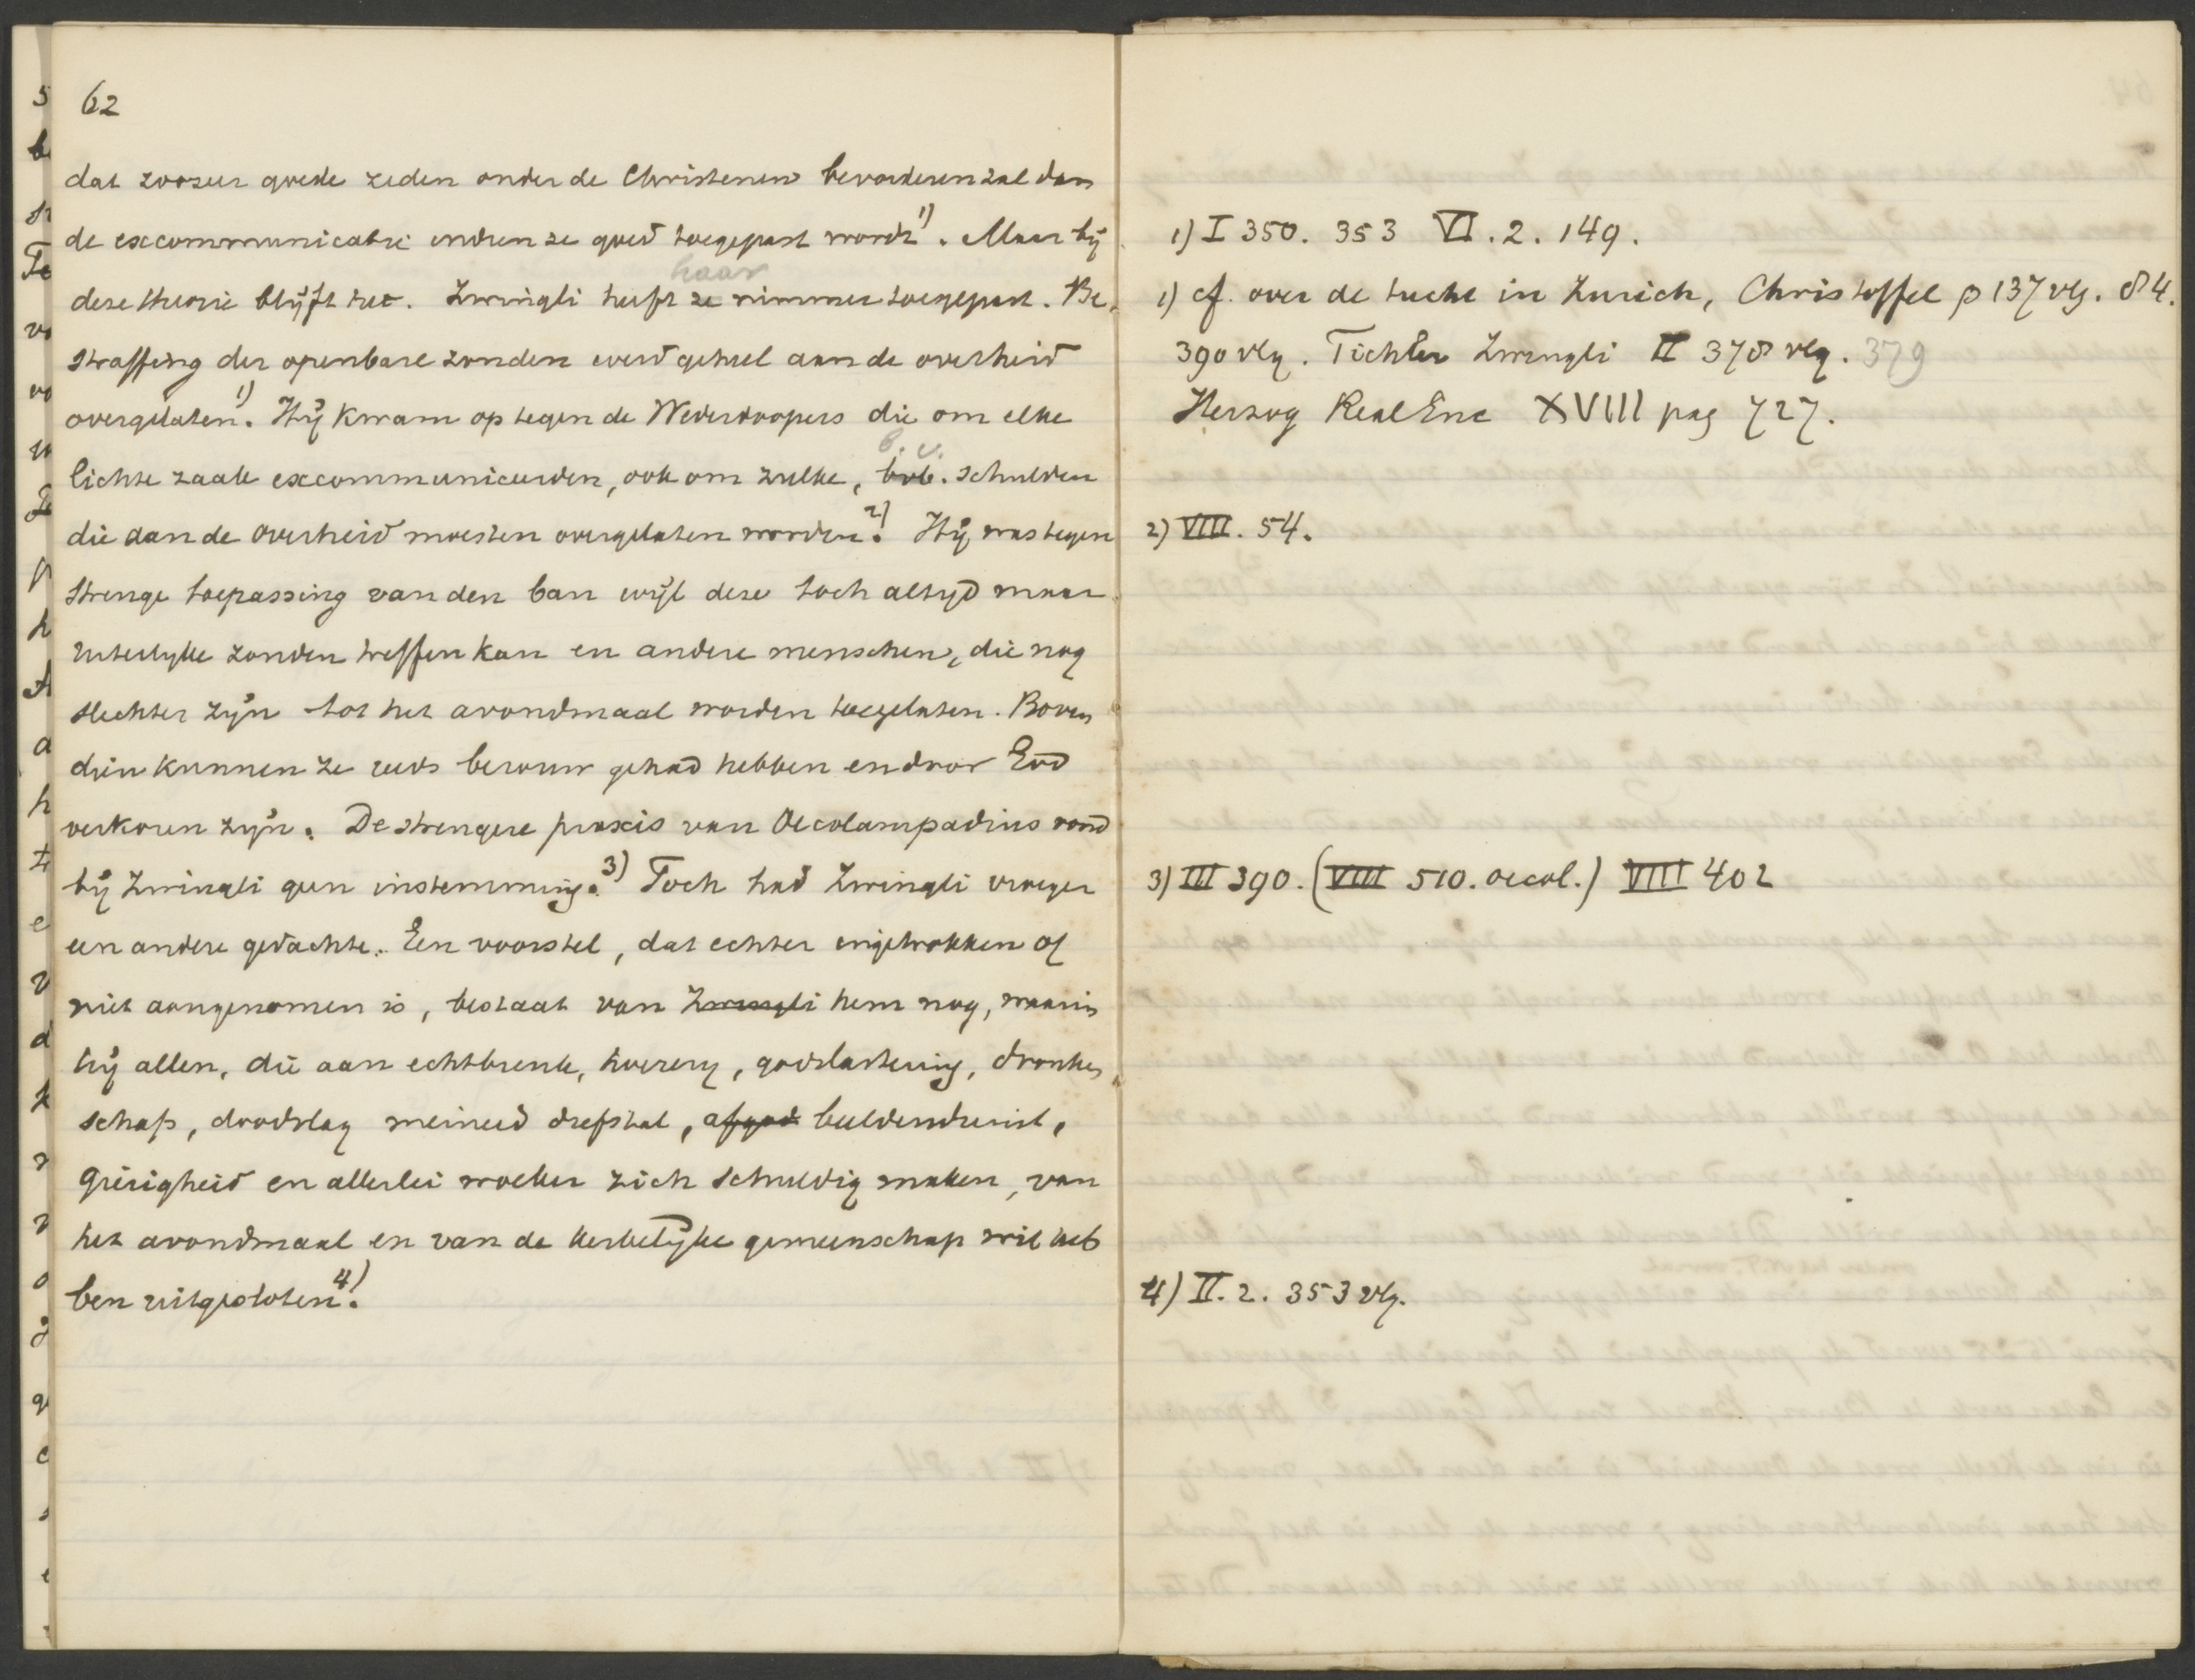 62
dat zoozeer goede zeden onder de Christenen bevorderen zal dan
de excommunicatie indien ze goed toegepast wordt 1). Maar bij
haar
deze theorie blijft het. Zwingli heeft ze nimmer toegepast. Be-
straffing der openbare zonden werd geheel aan de overheid
overgelaten 1). Hij kwam op tegen de Wederdoopers die om elke
b.v.
lichte zaak excommuniceerden, ook om zulke, bvb. schulden
die aan de overheid moesten overgelaten worden 2). Hij was tegen
strenge toepassing van den ban wijl deze toch altijd maar
uiterlijke zonden treffen kan en andere menschen, die nog
slechter zijn tot het avondmaal worden toegelaten. Boven
dien kunnen ze reeds berouw gehad hebben en door God
verkoren zijn. De strengere praxis van Oecolampadius vond
bij Zwingli geen instemming 3). Toch had Zwingli vroeger
een andere gedachte. Een voorstel, dat echter ingetrokken of
niet aangenomen is, bestaat van Zwingli hem nog, waarin
hij allen, die aan echtbreuk, hoererij, godslastering, dronken
schap, doodslag meineed diefstal, afgod beeldendienst,
gierigheid en allerlei woeker zich schuldig maken, van
het avondmaal en van de kerkelijke gemeenschap wil heb
ben uitgesloten 4).
1) I 350. 353 VI. 2. 149.
1) cf. over de tucht in Zurich, Christoffel p 137 vlg. 84.
390 vlg. Tichler Zwingli II 378 vlg. 379
Herzog RealEnc XVIII pag 727.
2) VIII. 54.
3) III 390. (VIII 510. oecol.) VIII 402
4) II. 2. 353 vlg.